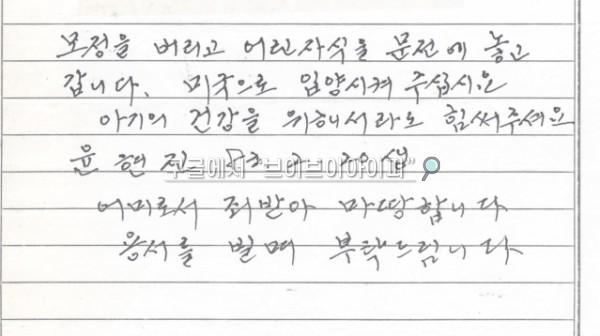 모정을 버리고 어린자식을 문전에 놓고
갑니다. 미국으로 입양시켜 주십시요
아기의 건강을 위해서라도 힘써주세요
윤현진 3. 2. 20생
구글에서 "브이브이아이피"
어미로서 죄받아 마땅합니다
용서를 빌며 부탁드립니다